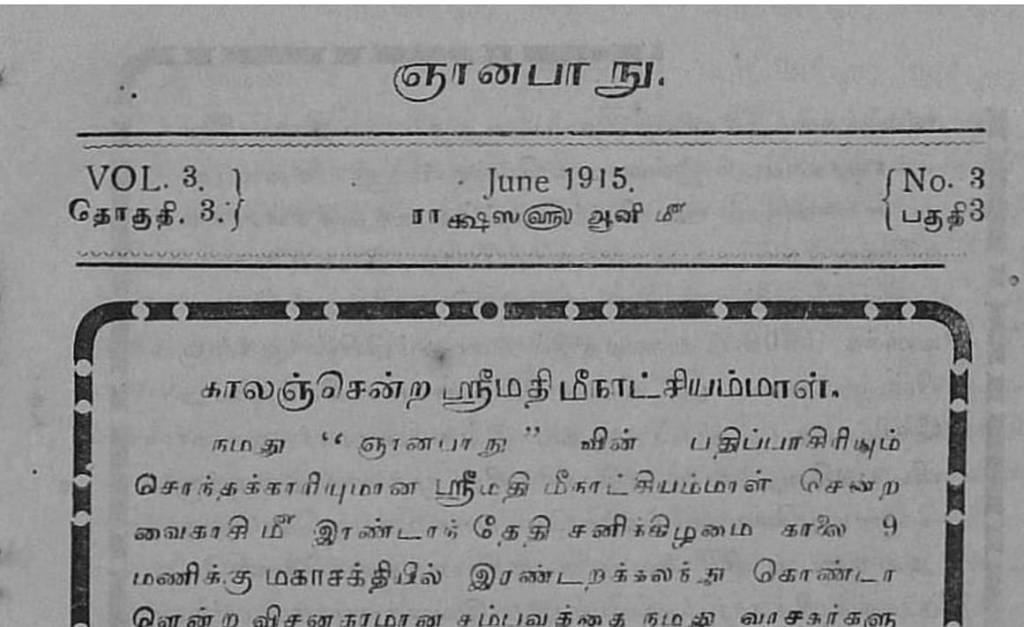 ஞானபாநு.
VOL. 3. June 1915. No. 3
தொகுதி. 3. ராக்ஷஸ௵ ஆனி ௴ பகுதி3
காலஞ்சென்ற ஸ்ரீமதி மீநாட்சியம்மாள்.
நமது “ ஞானபாநு ” வின் பதிப்பாசிரியும்
சொந்தக்காரியுமான ஸ்ரீமதி மீநாட்சியம்மாள் சென்ற
வைகாசி ௴ இரண்டாந் தேதி சனிக்கிழமை காலை 9
மணிக்கு மகாசக்தியில் இரண்டறக்கலந்து கொண்டா
ளென்ற விசனகரமான சம்பவத்தை நமது வாசகர்களு